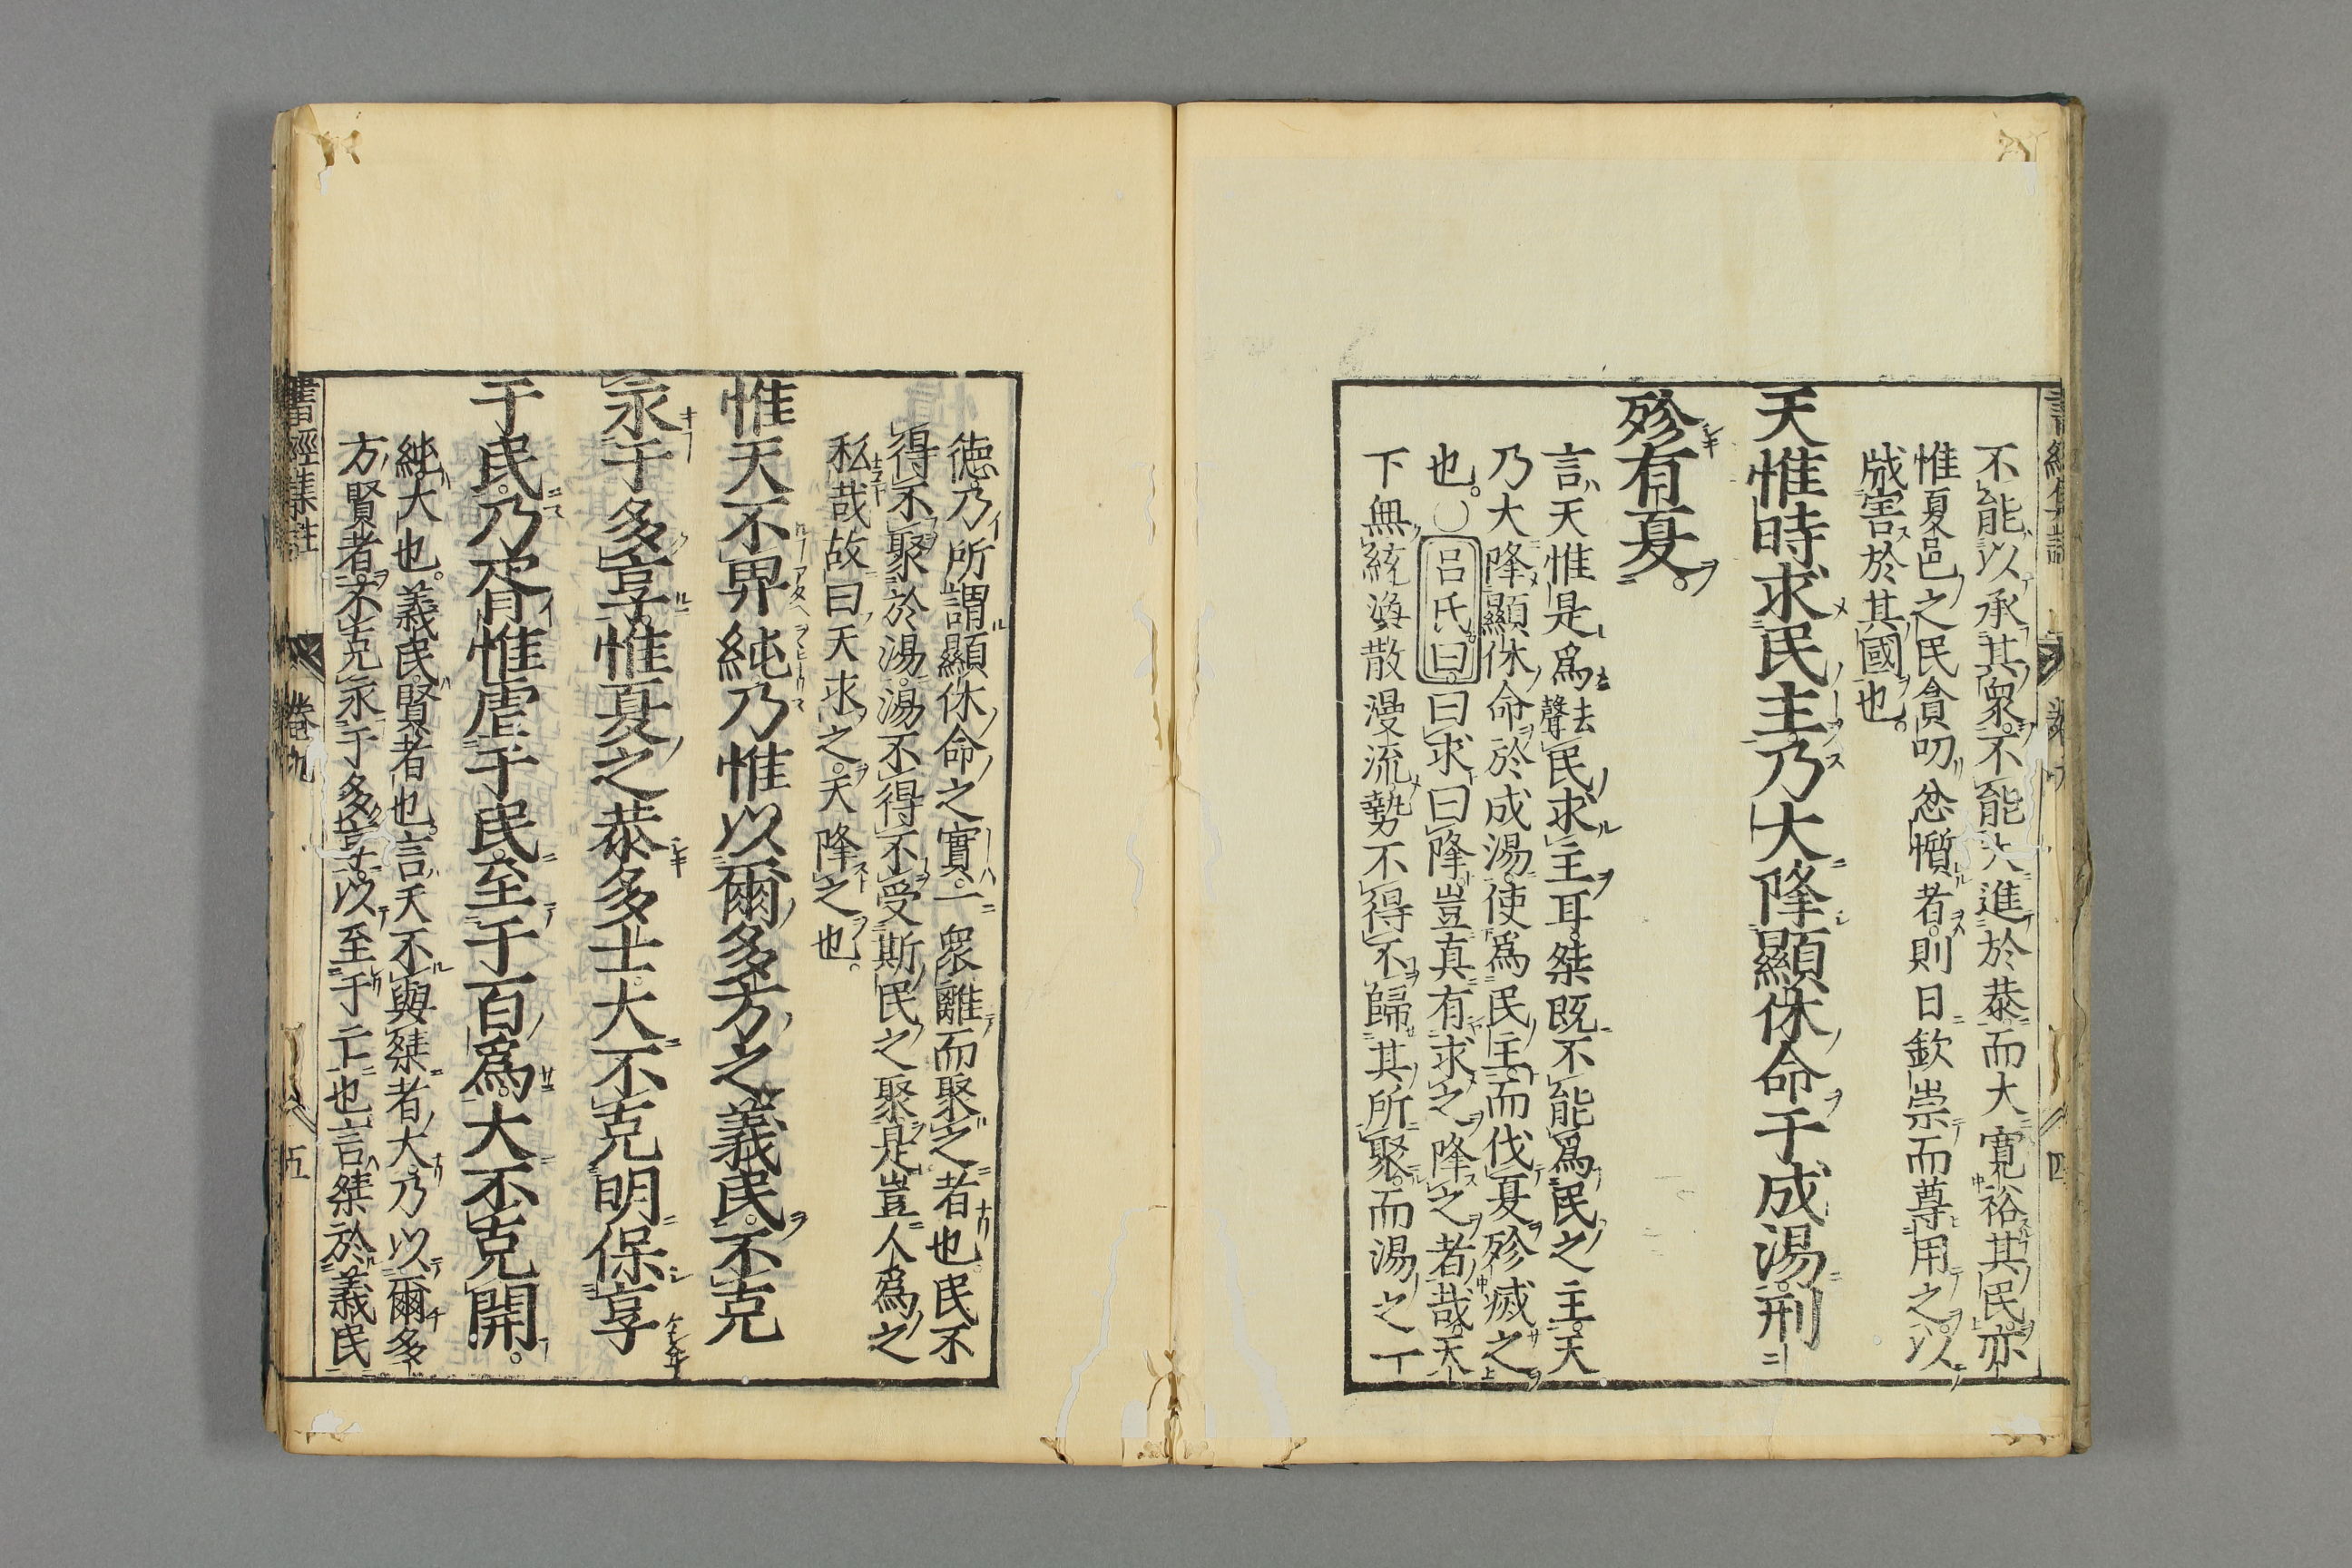 不能以承其衆不能大進於恭而大寬裕其民亦
惟夏邑之民貪叨忿懫者則日欽崇而尊用之以
戕害於其國也
天惟時求民主乃大降顯休命于成湯刑
殄有夏
言天惟是爲去聲民求主耳桀既不能爲民之主天
乃大降顯休命於成湯使爲民主而伐夏殄滅之
也○呂氏曰曰求曰降豈真有求之降之者哉天
下無統渙散漫流勢不得不歸其所聚而湯之一
德乃所謂顯休命之實一衆離而聚之者也民不
得不聚於湯湯不得不受斯民之聚是豈人爲之
私哉故曰天求之天降之也
惟天不畀純乃惟以爾多方之義民不克
永于多享惟夏之恭多士大不克明保享
于民乃胥惟虐于民至于百爲大不克開
純大也義民賢者也言天不與桀者大乃以爾多
方賢者不克永于多享以至于亡也言桀於義民
書經集註 卷九 五